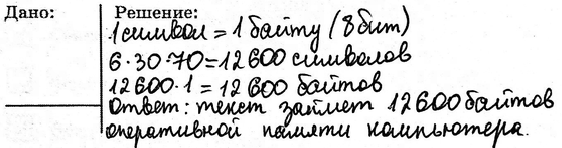 Дано: Решение:
1 символ = 1 байту (8 бит)
6·30·70=12600 символов
12600·1 = 12600 байтов
Ответ: текст займет 12600 байтов
оперативной памяти компьютера.